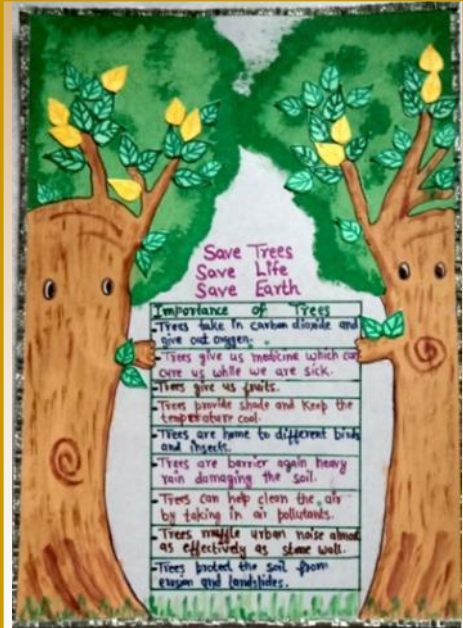 Save Trees
Save Life
Save Earth
Importance of Trees
-Trees take in carbon dioxide and
give out oxygen.
-Trees give us medicine which can
cure us while we are sick.
-Trees give us fruits.
-Trees provide shade and keep the
temperature cool.
-Trees are home to different birds
and insects.
-Trees are barrier again heavy
rain damaging the soil.
-Trees can help clean the air
by taking in air pollutants.
-Trees muffle urban noise almost
as effectively as stone wall.
-Trees protect the soil from
erosion and landslides.